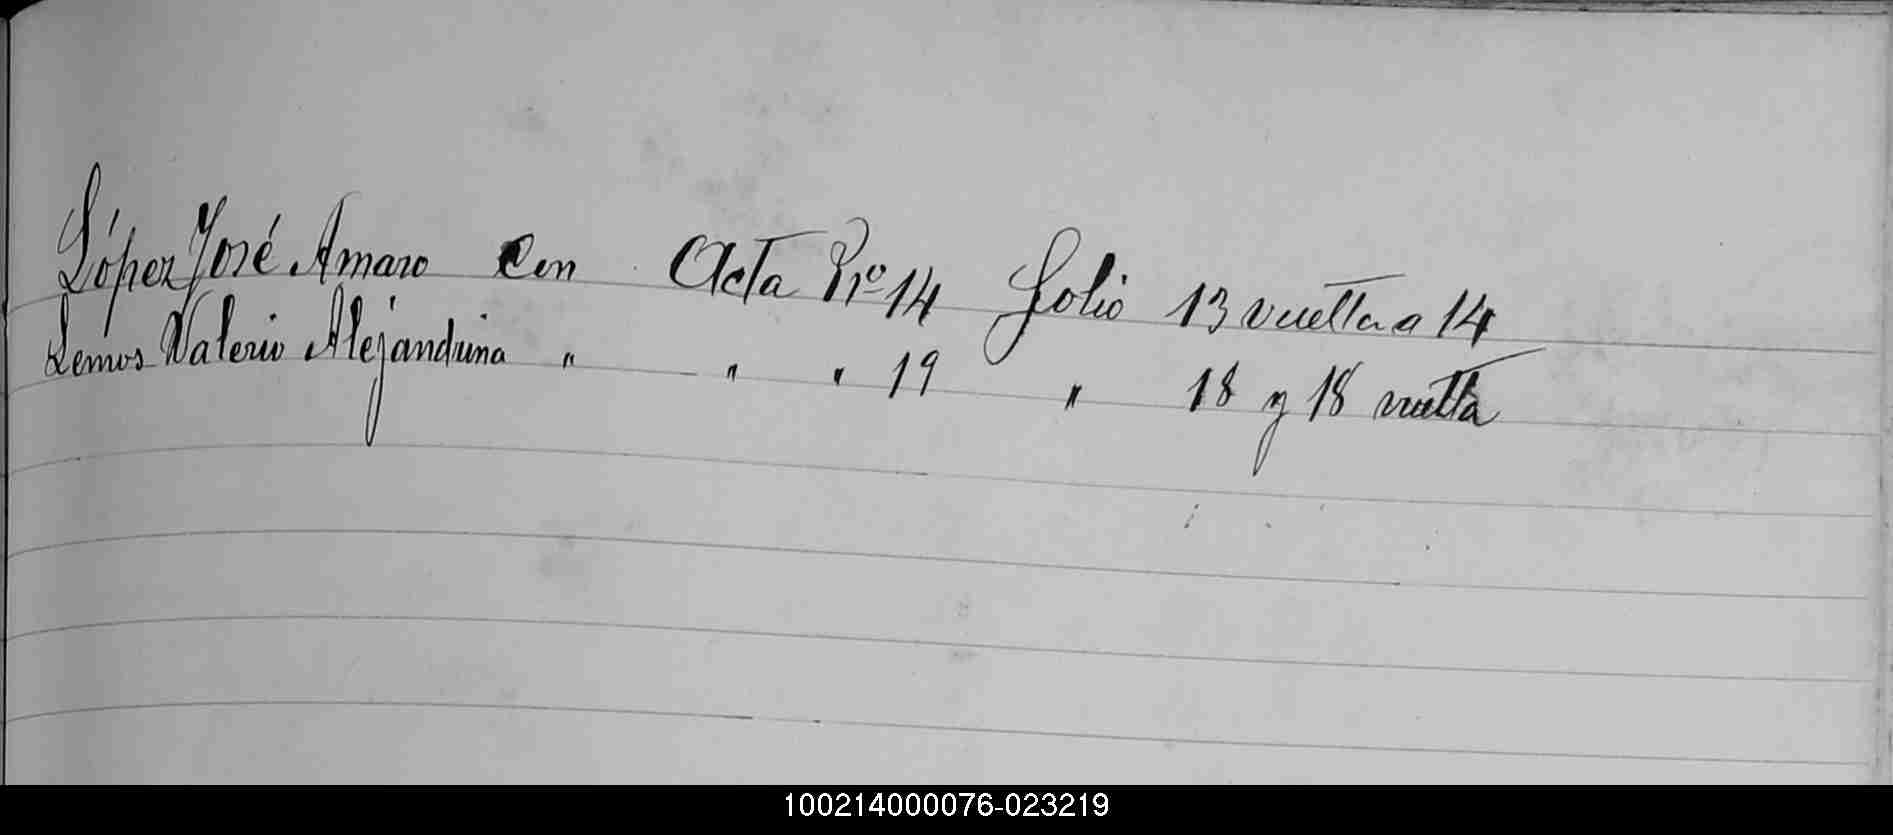 López José Amaro en Acta Nº 14 folio 13 vuelta a 14
Lemos Valerio Alejandrina " " " 19 " 18 y 18 vuelta
100214000076-023219